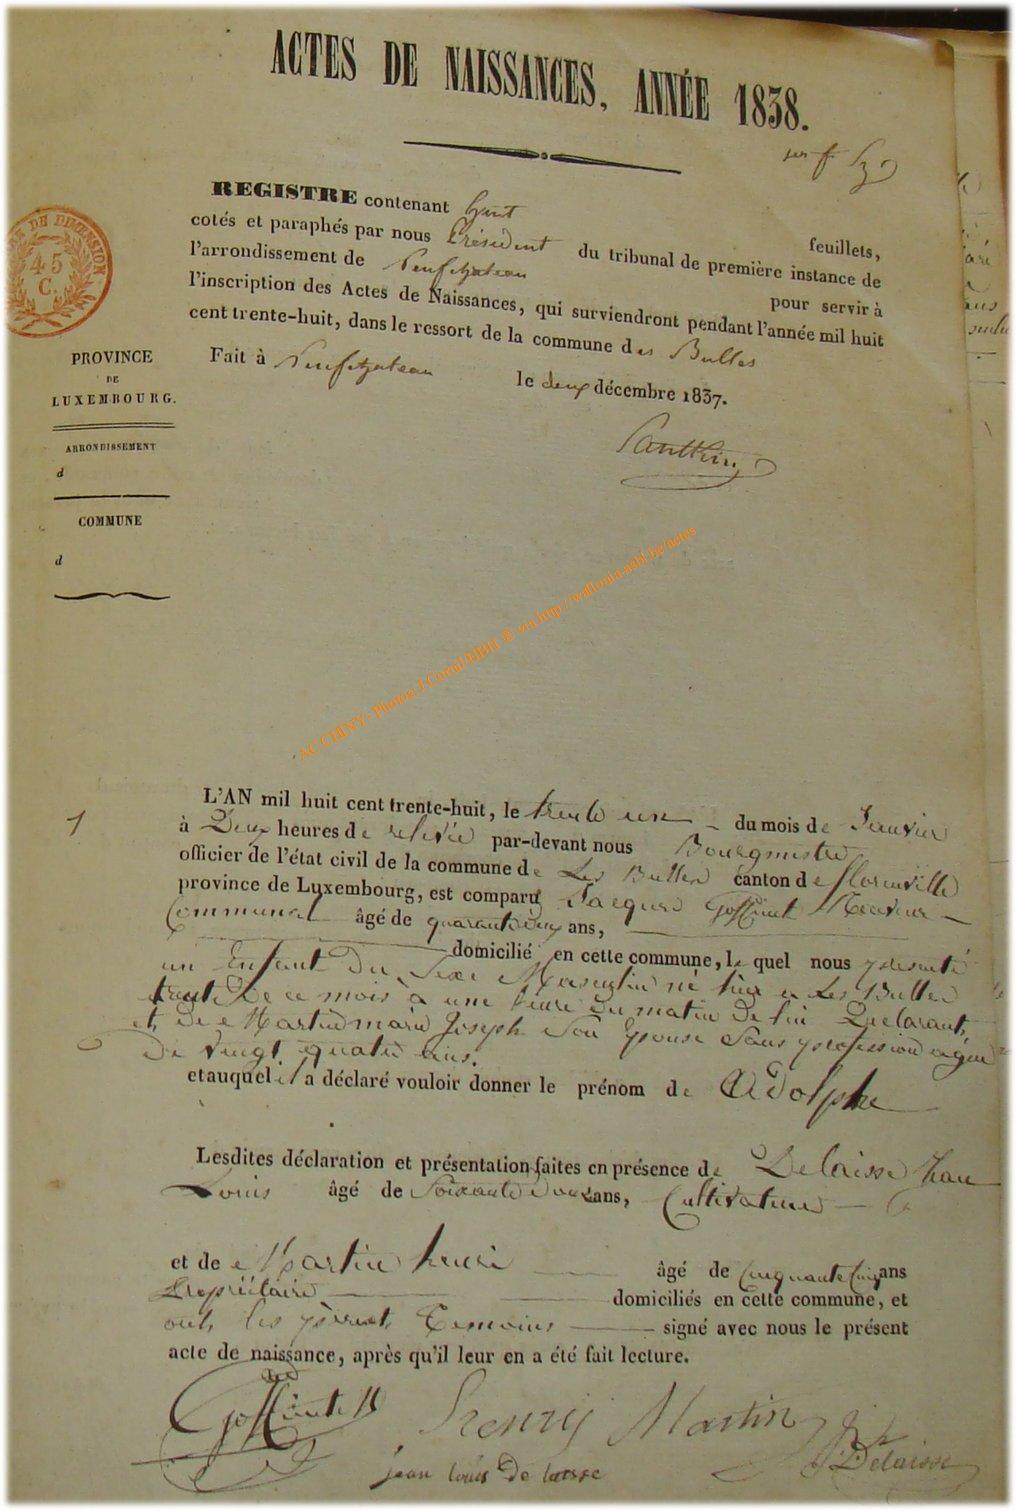 ACTES DE NAISSANCES, ANNÉE 1838.
REGISTRE contenant huit feuillets,
cotés et paraphés par nous Président du tribunal de première instance de
l'arrondissement de Neufchateau pour servir à
l'inscription des Actes de Naissances, qui surviendront pendant l'année mil huit
cent trente-huit, dans le ressort de la commune des Bulles
Fait à Neufchateau le deux décembre 1837.
DE DIMENSION
45
C.
PROVINCE
DE
LUXEMBOURG.
ARRONDISSEMENT
d
COMMUNE
d
AC CHINY - Photos J Comil/HBH © via http://wallonia-asbl.be/actes
1
L'AN mil huit cent trente-huit, le trente un du mois de Janvier
à Deux heures de relevée par-devant nous Bourgmestre
officier de l'état civil de la commune de Les Bulles canton de florenville
province de Luxembourg, est comparu Jacques Goffinet Receveur
Communal âgé de quarante deux ans,
domicilié en cette commune, le quel nous presenté
un Enfant Du Sexe Masculin né hier a Les Bulles
trente De ce mois à une heure du matin De lui Declarant,
et De Martin marie Joseph Son Epouse Sans profession agée
De Vingt quatre ans.
et auquel il a déclaré vouloir donner le prénom de Adolphe
Lesdites déclaration et présentation faites en présence de Delaisse Jean
Louis âgé de Soixante Douze ans, Cultivateur
et de Martin henri âgé de Cinquante Cinq ans
Propriétaire domiciliés en cette commune, et
ont, les père et Temoins signé avec nous le présent
acte de naissance, après qu'il leur en a été fait lecture.
Goffinet Henry Martin
jean louis De laisse Delaisse